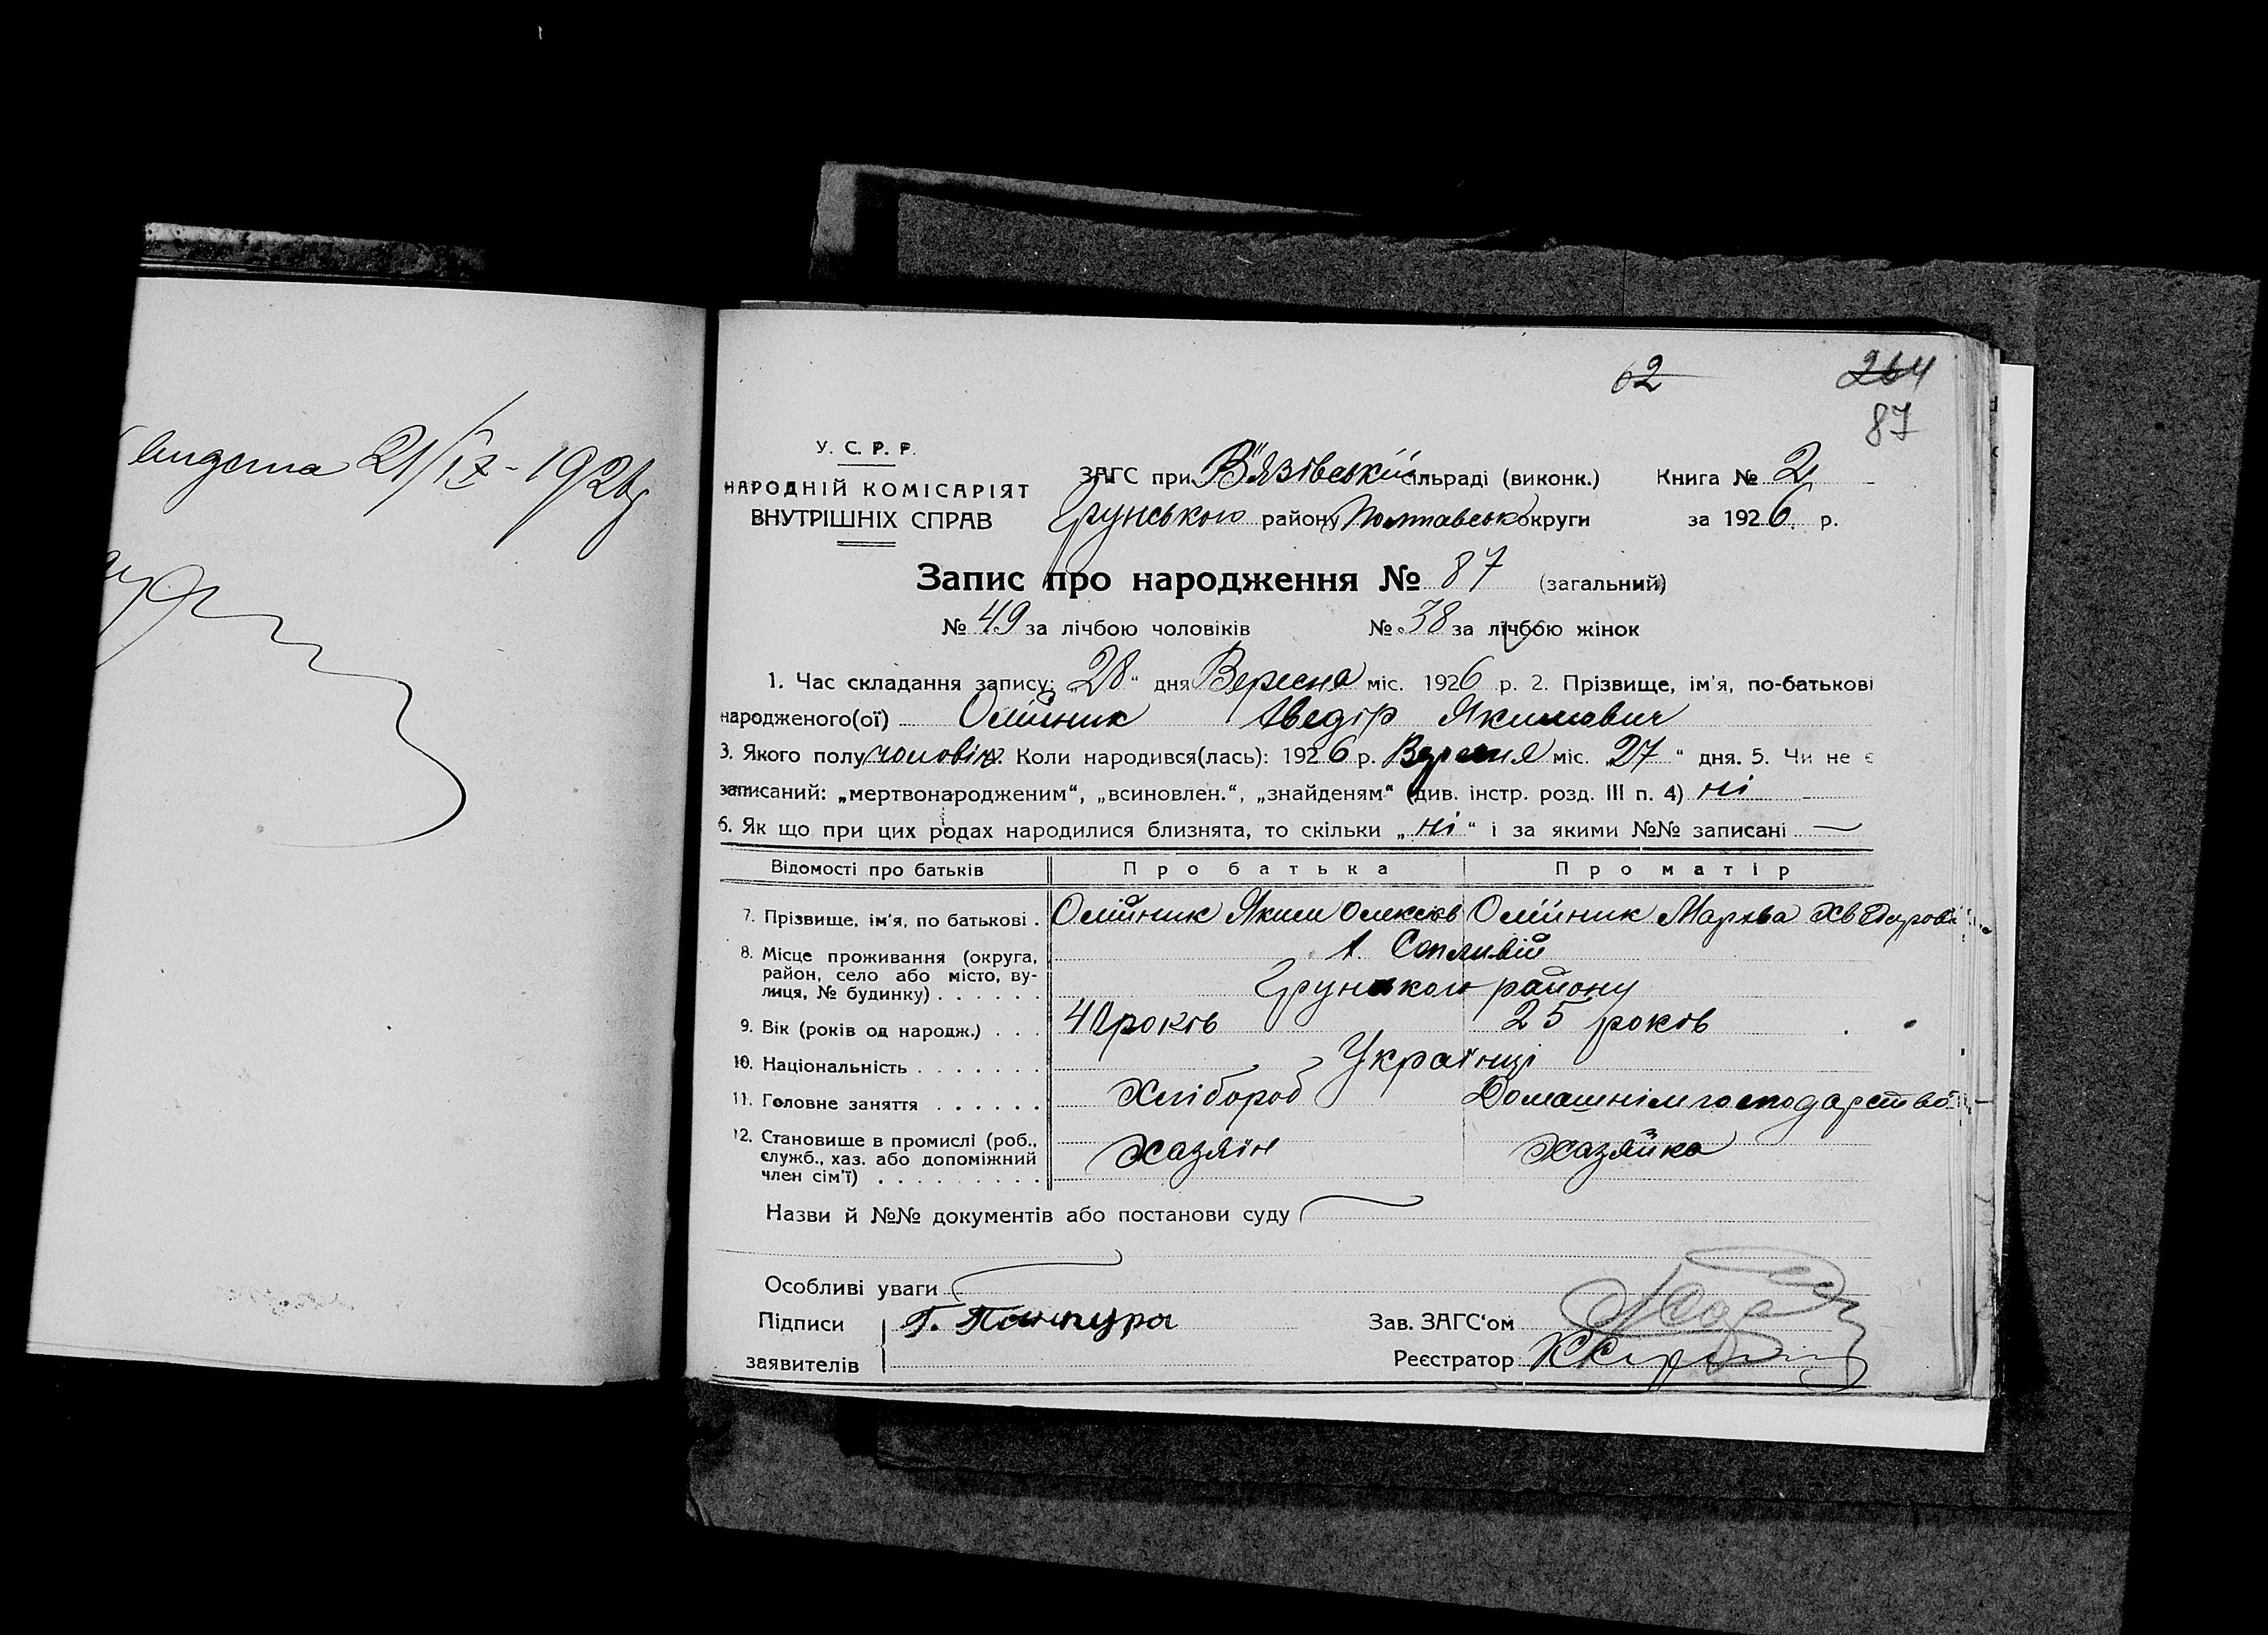 62 264
87
видана 21/IX - 192
У. С. Р. Р.
НАРОДНІЙ КОМІСАРІЯТ
ВНУТРІШНІХ СПРАВ
ЗАГС при В'язівській сільраді (виконк.) Книга № 2
Грунського району Полтавськ округи за 1926. р.
Запис про народження № 87 (загальний)
№ 49 за лічбою чоловіків № 38 за лічбою жінок
1. Час складання запису: „28“ дня Вересня міс. 1926 р. 2. Прізвище, ім'я, по-батькові
народженого(ої) Олійник Хведір Якимович
3. Якого полу чоловік. Коли народився(лась): 1926 р. Вересня міс. „27“ дня. 5. Чи не є
записаний: „мертвонародженим“, „всиновлен.“, „знайденям“ (див. інстр. розд. III п. 4) ні
6. Як що при цих родах народилися близнята, то скільки „ні“ і за якими №№ записані —
Відомості про батьків Про батька Про матір
7. Прізвище, ім'я, по батькові . Олійник Яким Олексієв Олійник Мархва Хведоровна
8. Місце проживання (округа,
район, село або місто, ву-
лиця, № будинку) . . . . . .
Грунського району
9. Вік (років од народж.) . . . 40 років 25 років
10. Національність . . . . . . . Українці
11. Головне заняття . . . . . . Хлібороб Домашнім господарством
12. Становище в промислі (роб.,
служб., хаз. або допоміжний
член сім'ї) . . . . . . . . . .
Хазяїн Хазяйка
Назви й №№ документів або постанови суду
Особливі уваги
Підписи Г. Панчура Зав. ЗАГС'ом
заявителів Реєстратор